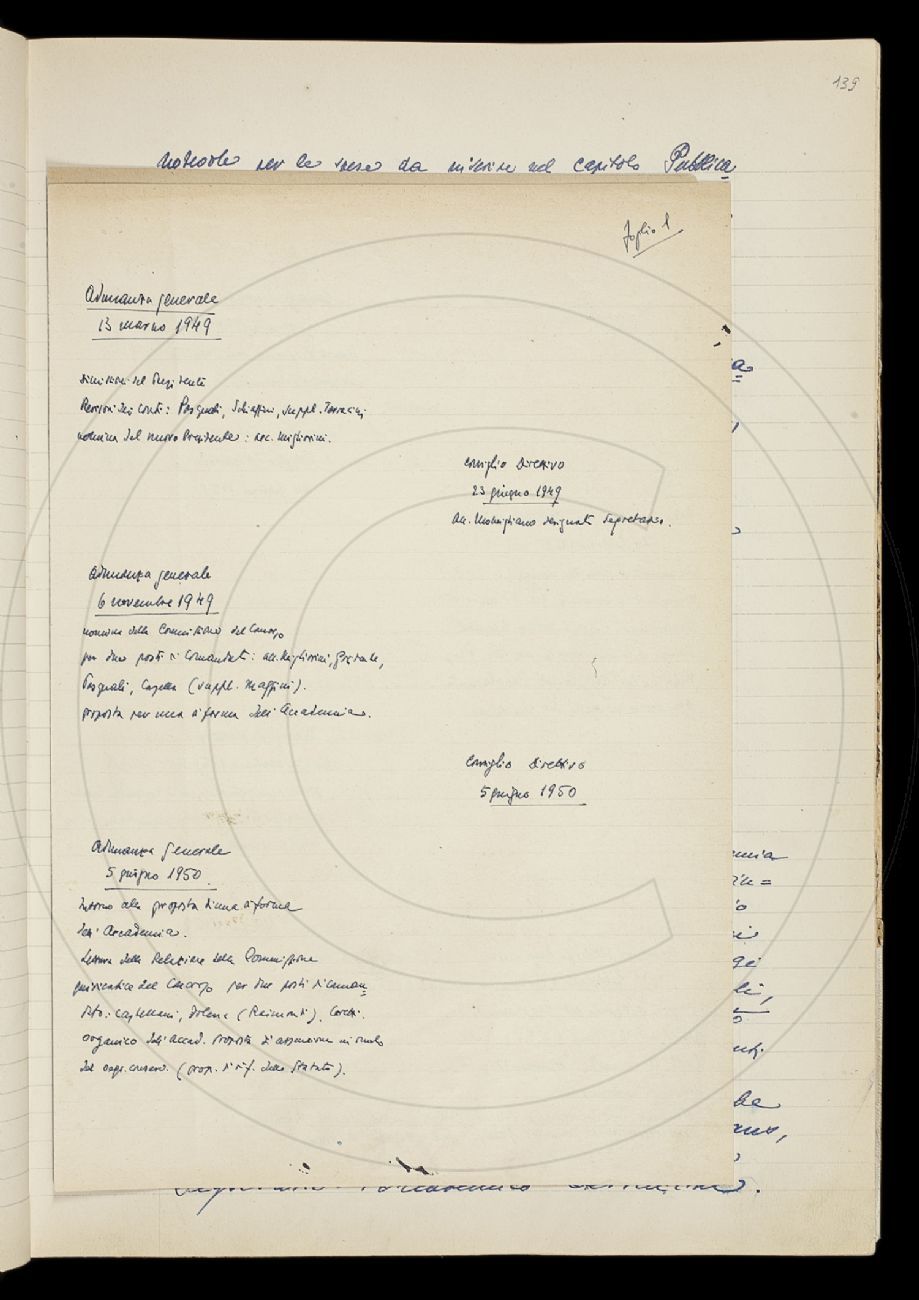 139
notevole per le spese da inserire nel capitolo Pubblica
foglio 1
Adunanza generale
13 marzo 1949
dimissioni del Presidente
Revisori dei conti: Pasquali, Schiaffini, suppl. Terracini
nomina del nuovo Presidente: acc. Migliorini.
Consiglio Direttivo
23 giugno 1949
Acc. Momigliano designato Segretario.
Adunanza generale
6 novembre 1949
nomina della Commissione del Concorso
per due posti di Comandati: acc. Migliorini,
Pasquali, Casella (suppl. Maffini).
proposta per una riforma dell'Accademia.
Consiglio Direttivo
5 giugno 1950
Adunanza generale
5 giugno 1950
intorno alla proposta di una riforma
dell'Accademia.
Lettura della Relazione della Commissione
giudicatrice del Concorso per due posti di coman-
dato: Castellani, Folena (Raimondi).
organico dell'Accad. proposta d'assunzione in ruolo
del (prop. di rif. dello Statuto).